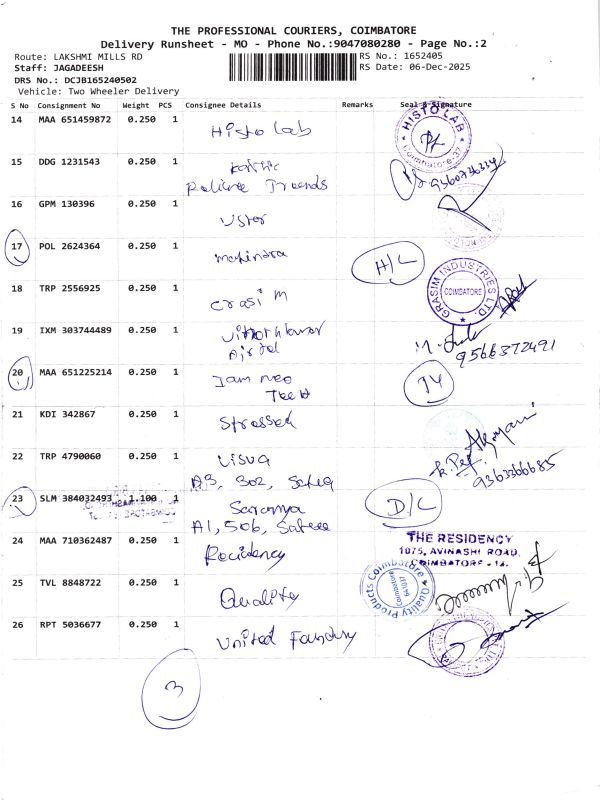 THE PROFESSIONAL COURIERS, COIMBATORE
Delivery Runsheet - MO - Phone No.:9047080280 - Page No.:2
Route: LAKSHMI MILLS RD
RS No.: 1652405
Staff: JAGADEESH
RS Date: 06-Dec-2025
DRS No.: DCJB165240502
Vehicle: Two Wheeler Delivery
S No Consignment No Weight PCS Consignee Details Remarks Seal & Signature
14 MAA 651459872 0.250 1 Histo Lab
HISTO LAB
Coimbatore-37
15 DDG 1231543 0.250 1
Trends
9360736334
16 GPM 130396 0.250 1
17 POL 2624364 0.250 1 Mahindra H/L
18 TRP 2556925 0.250 1 Grasim
GRASIM INDUSTRIES LTD
COIMBATORE
19 IXM 303744489 0.250 1
Airtel
9566372491
20 MAA 651225214 0.250 1
21 KDI 342867 0.250 1
22 TRP 4790060 0.250 1 Visva
A3, 302,
9363366685
23 SLM 384032493 1.100 1 Saranya D/L
A1, 506,
24 MAA 710362487 0.250 1 Recidency
THE RESIDENCY
1075, AVINASHI ROAD,
COIMBATORE - 14.
25 TVL 8848722 0.250 1 Quality
Quality Products Coimbatore
Coimbatore
641037
26 RPT 5036677 0.250 1 United Foundry
3